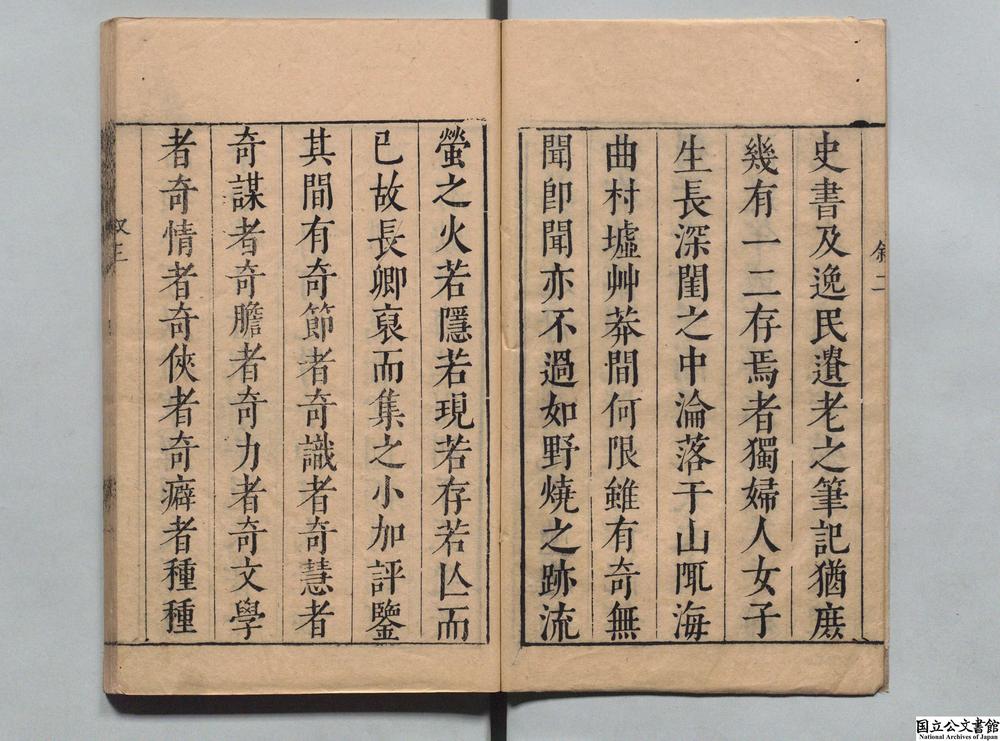 史書及逸民遺老之筆記猶庶
幾有一二存焉者獨婦人女子
生長深閨之中淪落于山陬海
曲村墟艸莽間何限雖有奇無
聞卽聞亦不過如野燒之跡流
敘二
螢之火若隱若現若存若亾而
已故長卿裒而集之小加評鑒
其間有奇節者奇識者奇慧者
奇謀者奇膽者奇力者奇文學
者奇情者奇俠者奇癖者種種
国立公文書館
National Archives of Japan